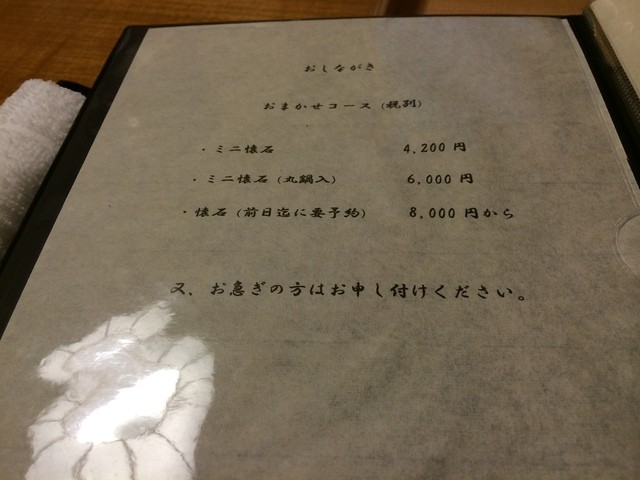 おしながき
おまかせコース (税別)
・ミニ懐石 4,200 円
・ミニ懐石 (丸鍋入) 6,000 円
・懐石 (前日迄に要予約) 8,000 円から
又、お急ぎの方はお申し付けください。